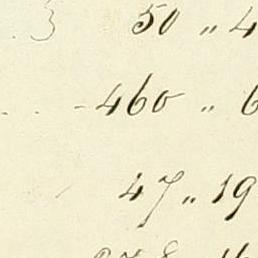 3 50 „ 4
460 „ 6
47 „ 19